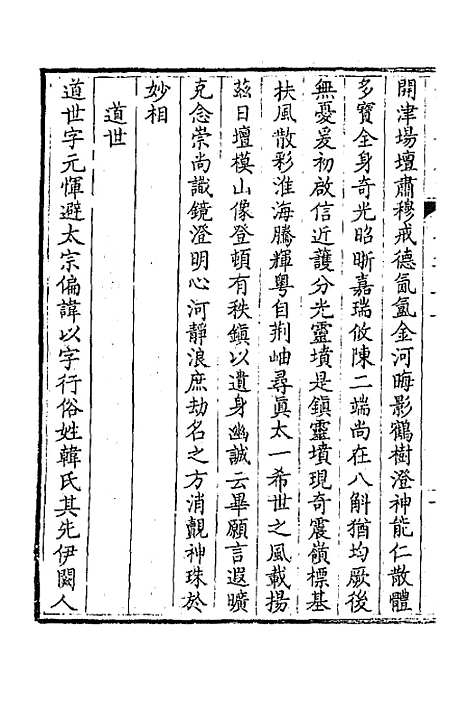 開津場壇肅穆戒德氤氳金河晦影鶴樹澄神能仁散體
多寶全身奇光昭晣嘉瑞攸陳二端尚在八斛猶均厥後
無憂爰初啟信近護分光靈墳是鎮靈墳現奇震嶺標基
扶風散彩淮海騰輝粵自荆岫尋眞太一希世之風載揚
茲日壇模山像登頓有秩鎮以遺身幽誠云畢願言遐曠
克念崇尚識鏡澄明心河靜浪庶劫名之方消覿神珠於
妙相
道世
道世字元惲避太宗偏諱以字行俗姓韓氏其先伊闕人